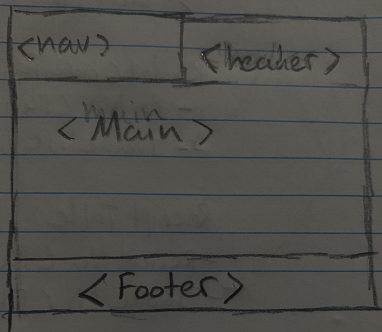 <nav>
<header>
<Main>
<Footer>